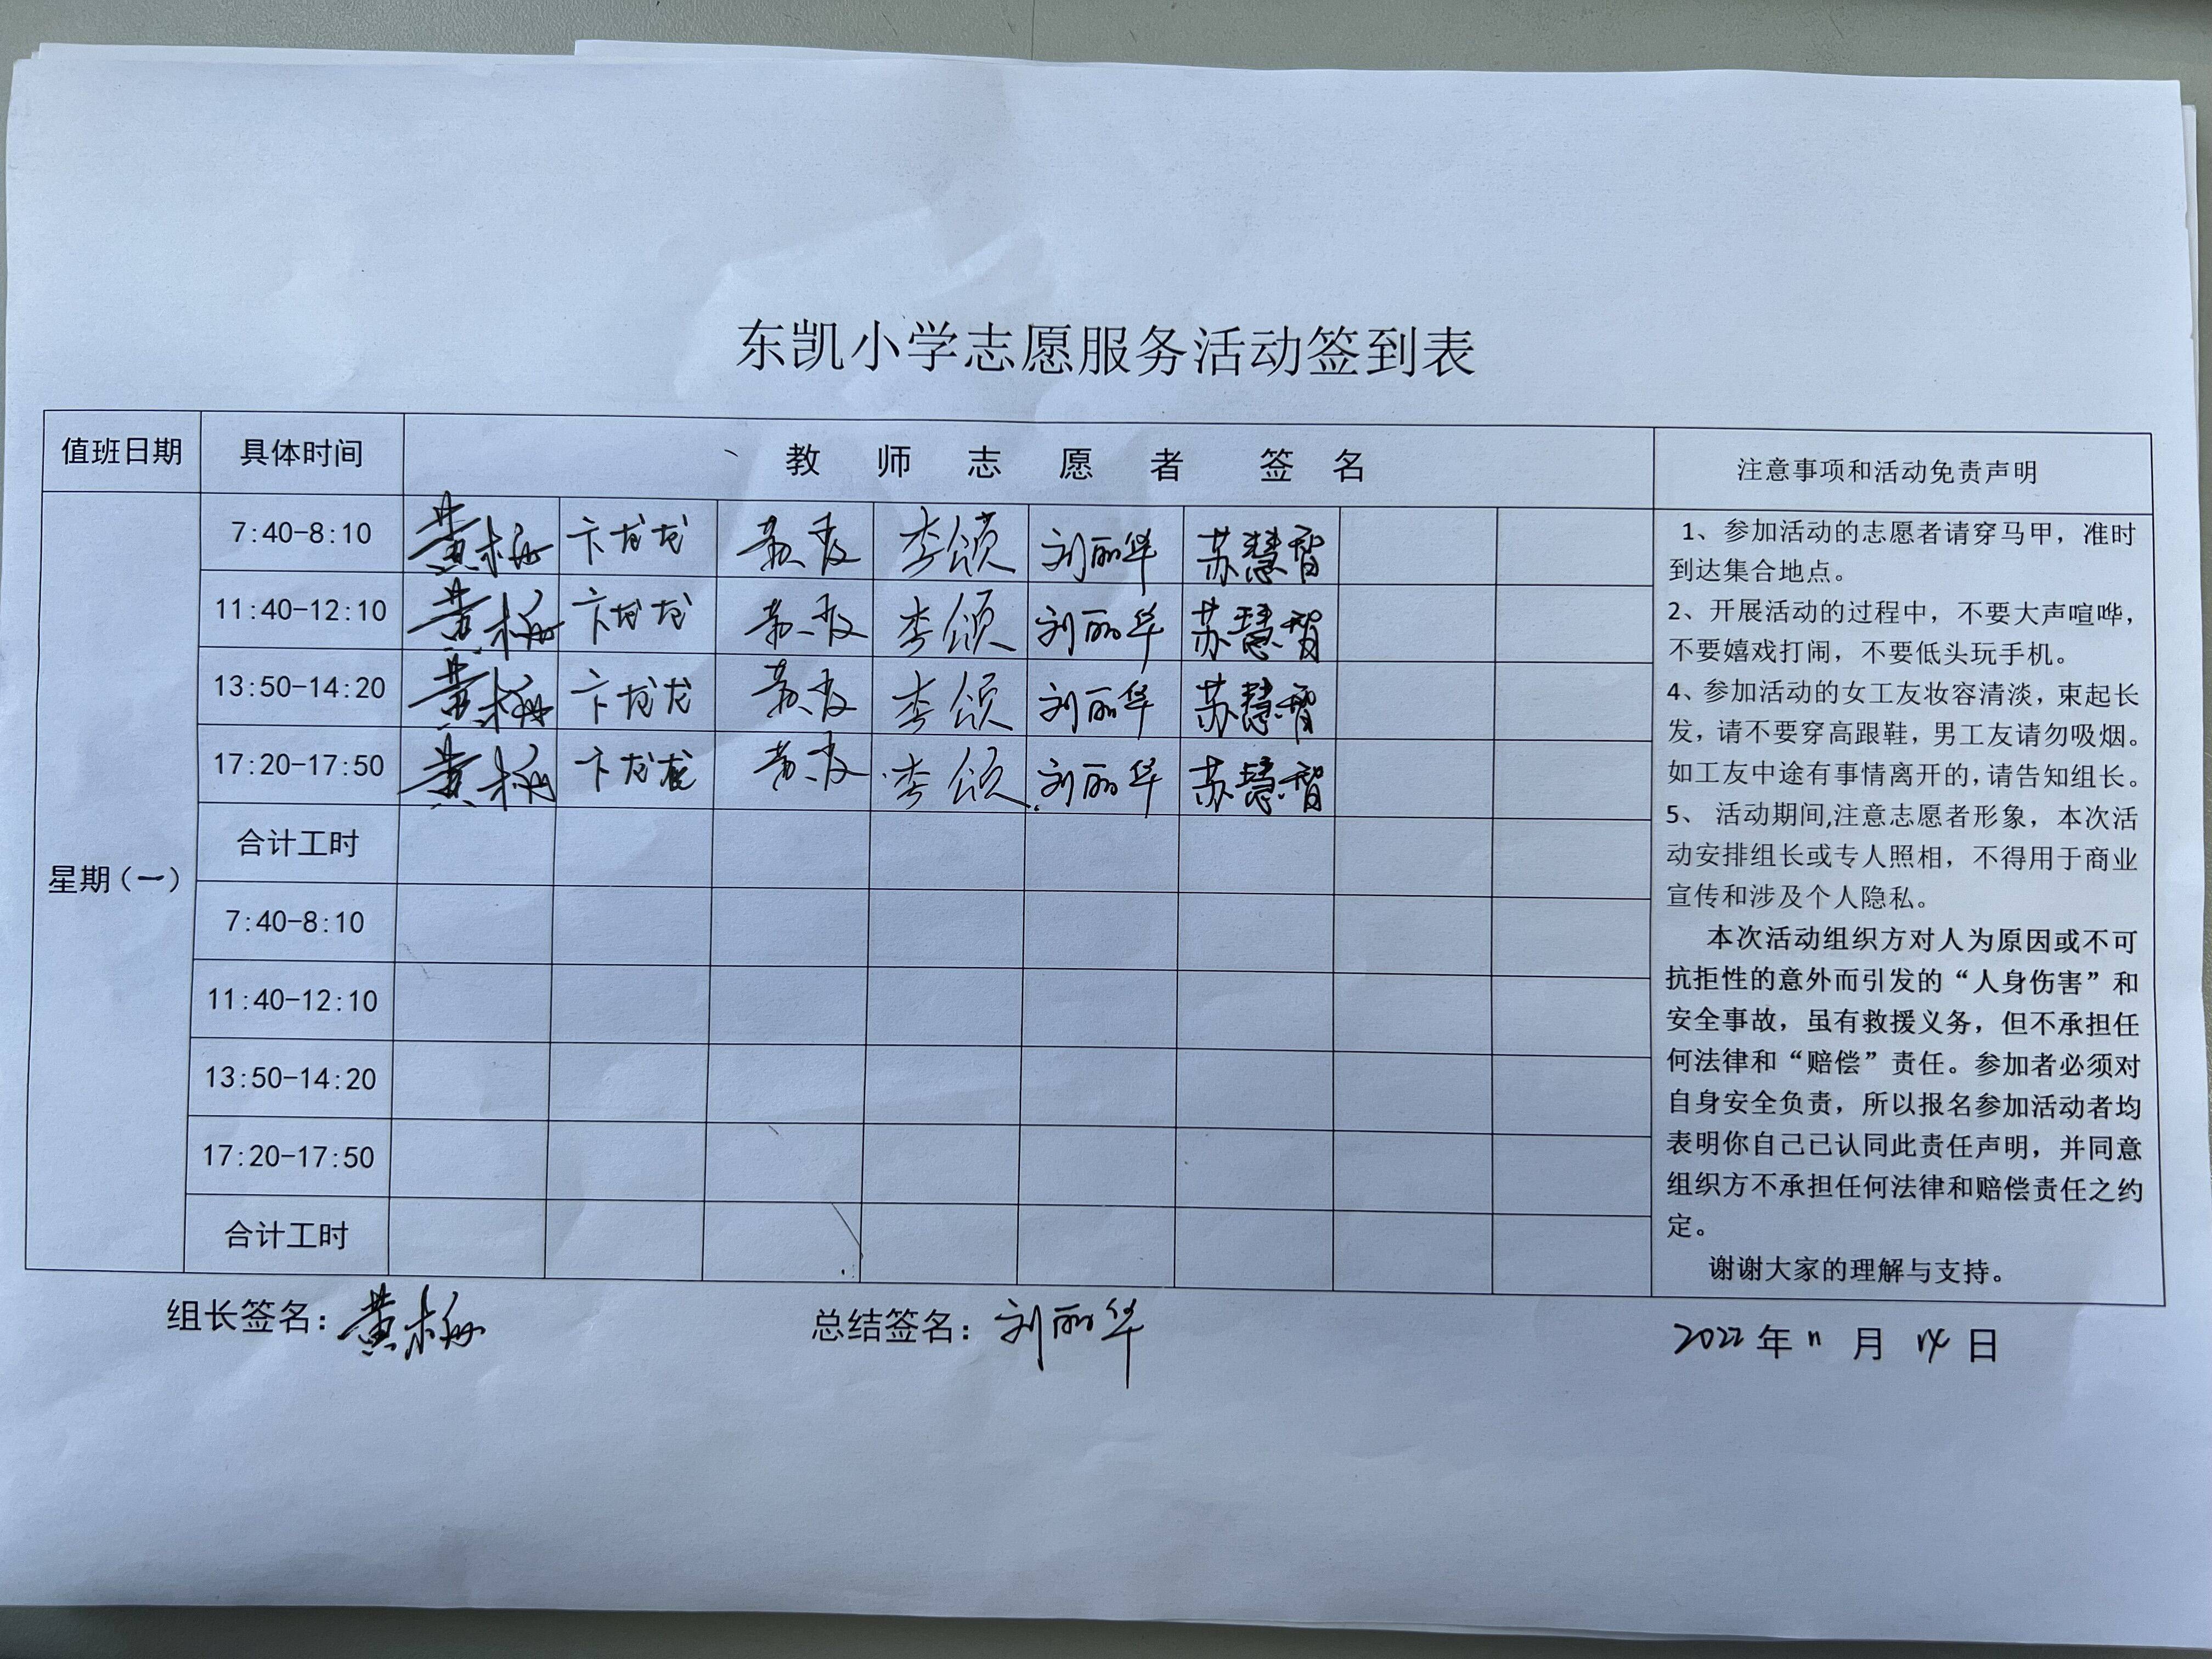 东凯小学志愿服务活动签到表
值班日期 具体时间 教师志愿者签名 注意事项和活动免责声明
星期(一)
7:40-8:10 黄梅 卞龙龙 李颂 刘丽华 苏慧智
11:40-12:10 黄梅 卞龙龙 李颂 刘丽华 苏慧智
13:50-14:20 黄梅 卞龙龙 李颂 刘丽华 苏慧智
17:20-17:50 黄梅 卞龙龙 李颂 刘丽华 苏慧智
合计工时
7:40-8:10
11:40-12:10
13:50-14:20
17:20-17:50
合计工时
1、参加活动的志愿者请穿马甲，准时
到达集合地点。
2、开展活动的过程中，不要大声喧哗，
不要嬉戏打闹，不要低头玩手机。
4、参加活动的女工友妆容清淡，束起长
发，请不要穿高跟鞋，男工友请勿吸烟。
如工友中途有事情离开的，请告知组长。
5、 活动期间,注意志愿者形象，本次活
动安排组长或专人照相，不得用于商业
宣传和涉及个人隐私。
本次活动组织方对人为原因或不可
抗拒性的意外而引发的“人身伤害”和
安全事故，虽有救援义务，但不承担任
何法律和“赔偿”责任。参加者必须对
自身安全负责，所以报名参加活动者均
表明你自己已认同此责任声明，并同意
组织方不承担任何法律和赔偿责任之约
定。
谢谢大家的理解与支持。
组长签名：黄梅 总结签名：刘丽华 2022年11月14日